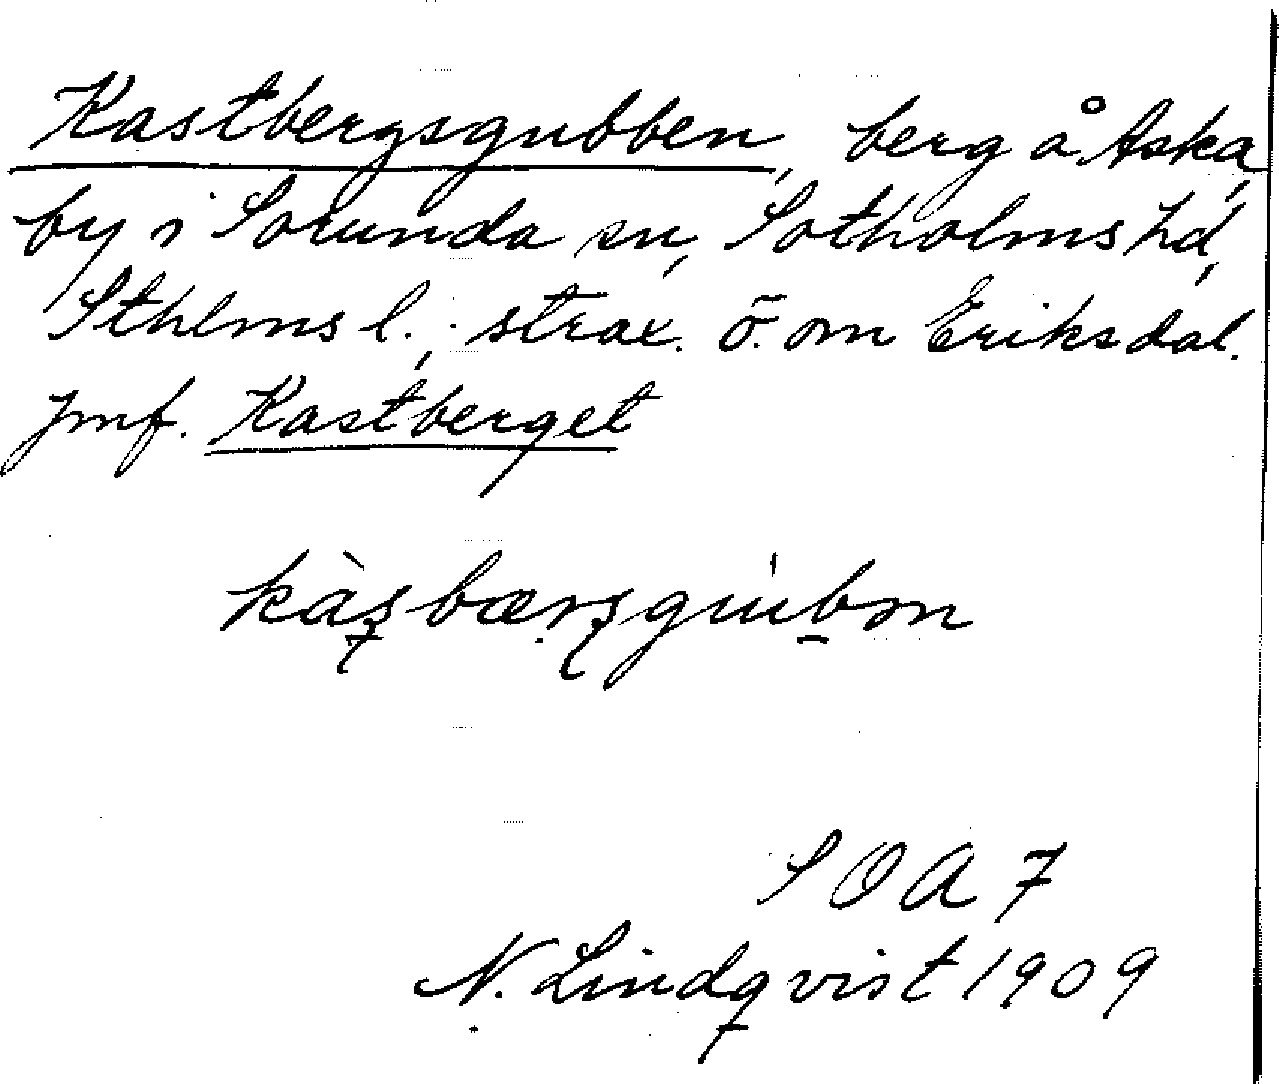 Kastbergsgubben, berg å Aska,
by i Sorunda sn, Sotholms hd,
Sthlms l.; strax. ö. om Eriksdal.
Jmf. Kastberget
kàsbærsgubm
SOA 7
N. Lindqvist 1909